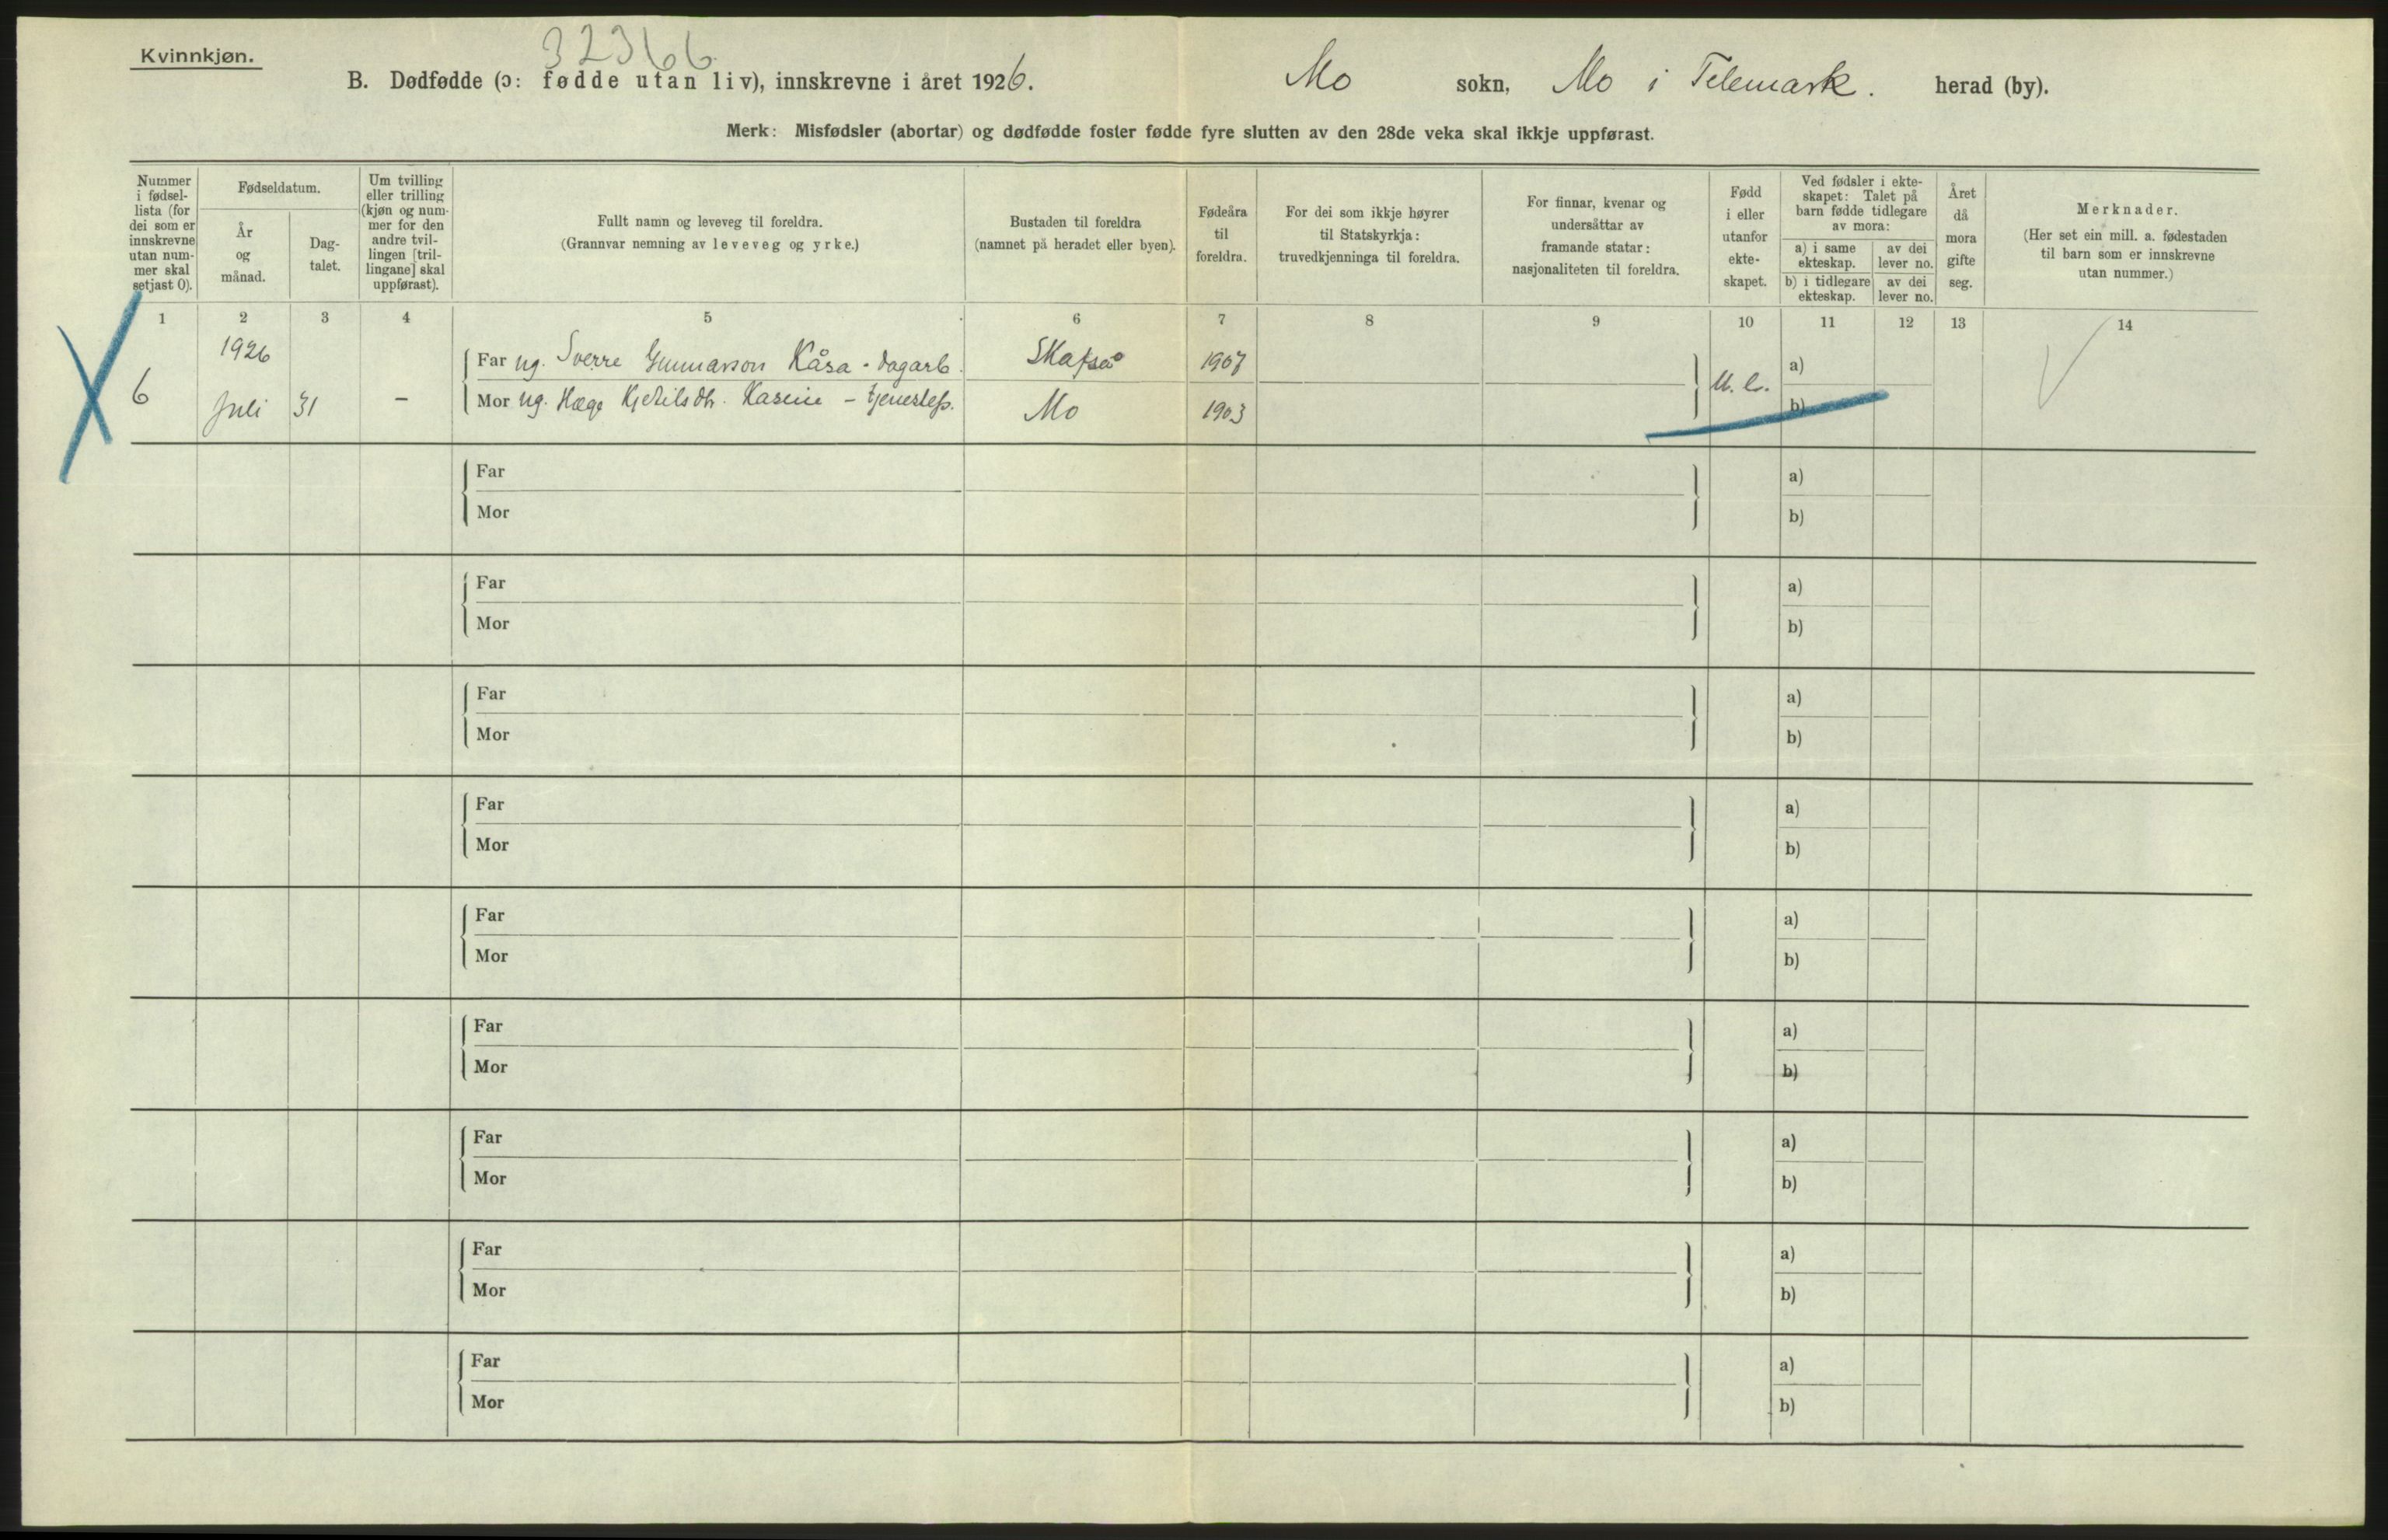 Kvinnkjøn.
32366
B. Dødfødde (ɔ: fødde utan liv), innskrevne i året 1926. Mo sokn, Mo i Telemark. herad (by).
Merk: Misfødsler (abortar) og dødfødde foster fødde fyre slutten av den 28de veka skal ikkje uppførast.
Nummer i fødsel-lista (for dei som er innskrevne utan num-mer skal setjast 0).
Fødseldatum.
År og månad.
Dag-talet.
Um tvilling eller trilling (kjøn og num-mer for den andre tvil-lingen [tril-lingane] skal uppførast).
Fullt namn og leveveg til foreldra.
(Grannvar nemning av leveveg og yrke.)
Bustaden til foreldra
(namnet på heradet eller byen).
Fødeåra til foreldra.
For dei som ikkje høyrer til Statskyrkja: truvedkjenninga til foreldra.
For finnar, kvenar og undersåttar av framande statar: nasjonaliteten til foreldra.
Fødd i eller utanfor ekte-skapet.
Ved fødsler i ekte-skapet: Talet på barn fødde tidlegare av mora:
a) i same ekteskap.
av dei lever no.
b) i tidlegare ekteskap.
av dei lever no.
Året då mora gifte seg.
Merknader.
(Her set ein mill. a. fødestaden til barn som er innskrevne utan nummer.)
1 2 3 4 5 6 7 8 9 10 11 12 13 14
1926 Far ug. Sverre Gunnarson Kåsa - dagarb. Skafså 1907 a)
6 Juli 31 - Mor ug. Hæge Kjetilsdtr. - Mo 1903 U. e. b)
Far a)
Mor b)
Far a)
Mor b)
Far a)
Mor b)
Far a)
Mor b)
Far a)
Mor b)
Far a)
Mor b)
Far a)
Mor b)
Far a)
Mor b)
Far a)
Mor b)